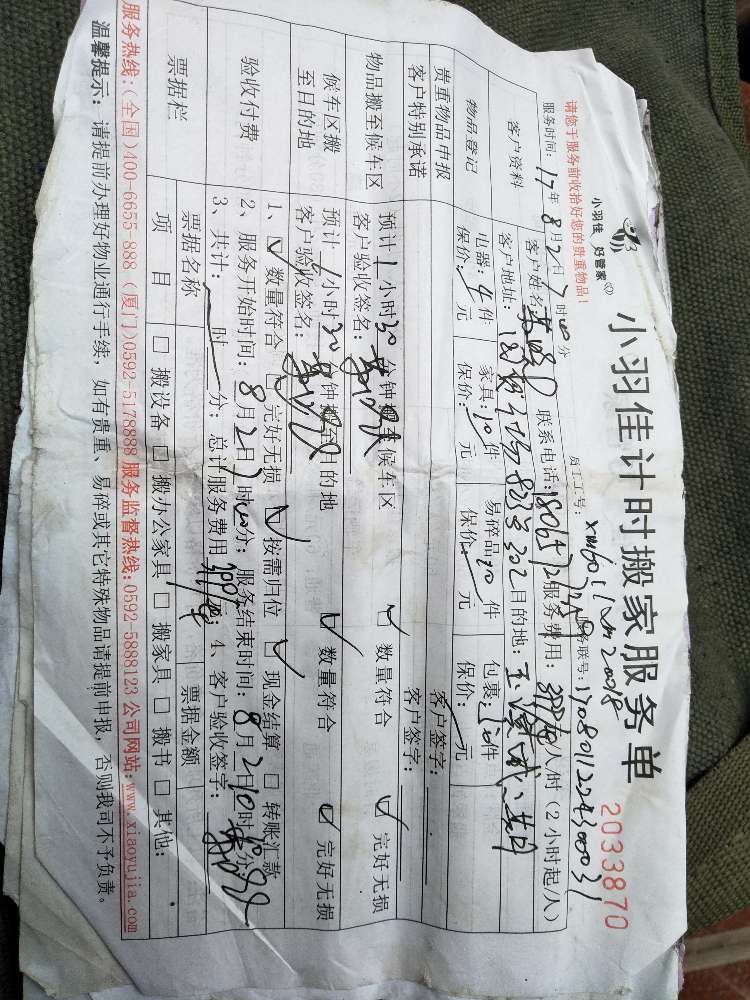 小羽佳 好管家
小羽佳计时搬家服务单
2033870
请您于服务前收拾好您的贵重物品!
员工工号:
服务联号:
服务时间: 17年8月2日7时00分
客户资料
客户姓名: 联系电话: 服务费用: 人/时 (2小时起/人)
客户地址: 目的地:
物品登记
电器: 4件 家具: 10件 易碎品 件 包裹: 件
保价: 元 保价: 元 保价: 元 保价: 元
贵重物品申报
客户签字:
客户特别承诺
客户签字:
物品搬至候车区
预计1小时30分钟搬至候车区 数量符合 完好无损
客户验收签名:
候车区搬至目的地
预计1小时30分钟搬至目的地 数量符合 完好无损
客户验收签名:
验收付费
1、 数量符合 完好无损 按需归位 现金结算 转账汇款
2、服务开始时间: 8月2日7时00分; 服务结束时间: 8月2日10时 分;
3、共计: 时 分; 总计服务费用 4、客户验收签字:
票据栏
票据名称 票据金额
项目 搬设备 搬办公家具 搬家具 搬书 其他:
服务热线:(全国)400-6655-888 (厦门)0592-5178888 服务监督热线:0592-5888123 公司网站:www.xiaoyujia.com
温馨提示: 请提前办理好物业通行手续, 如有贵重、易碎或其它特殊物品请提前申报, 否则我司不予负责。